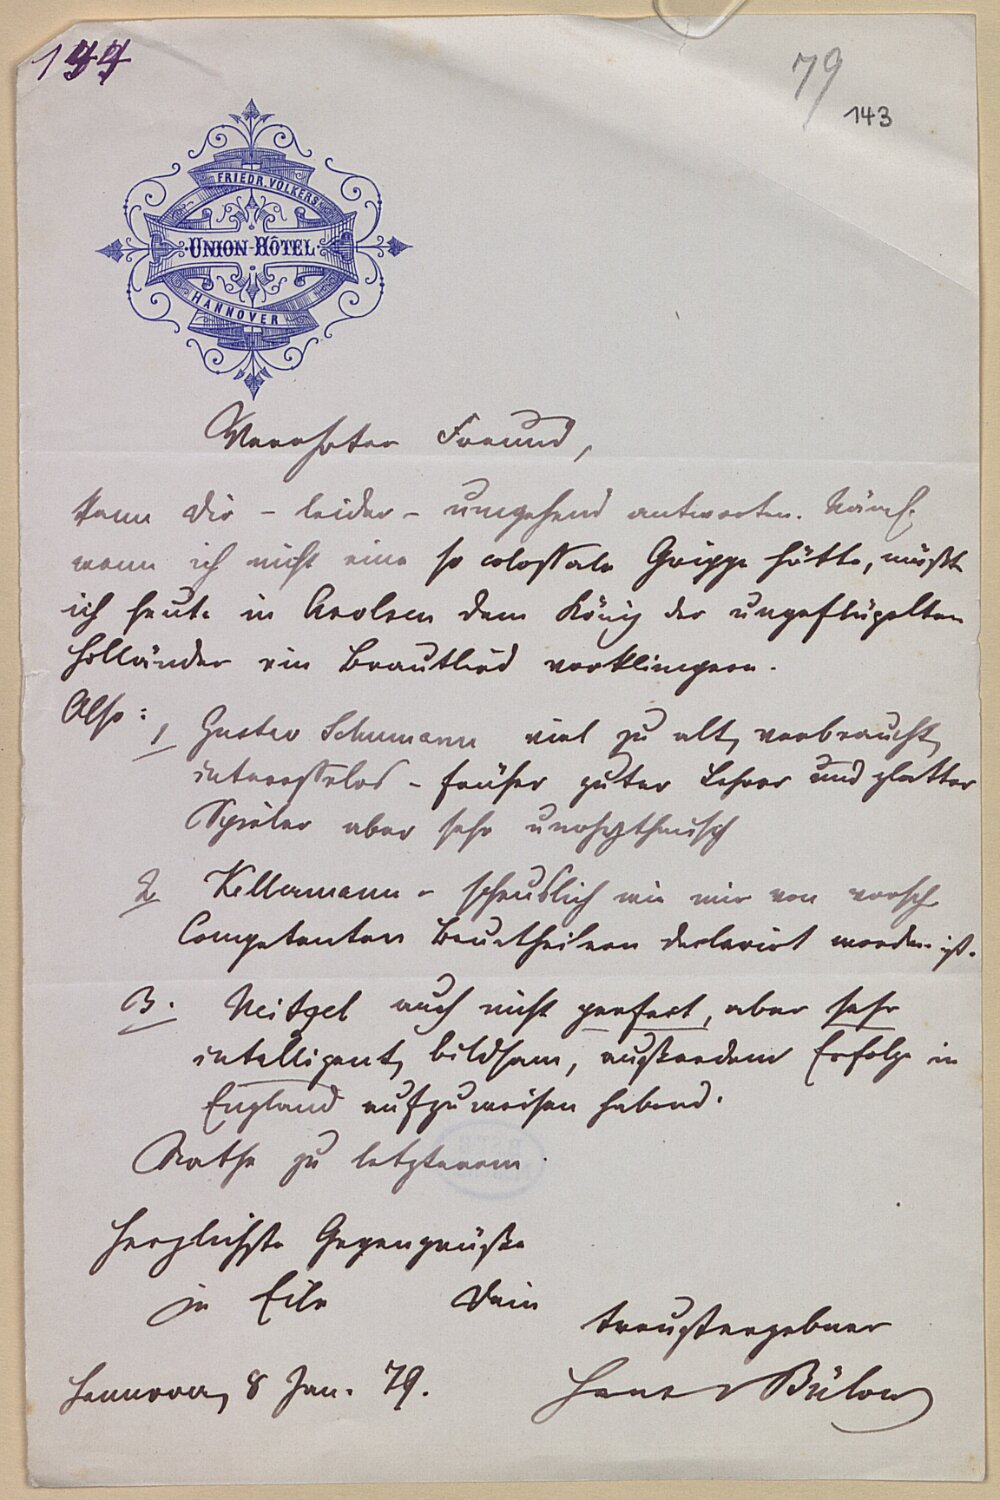 144
79
143
FRIEDR. VÖLKERS
UNION-HÔTEL
HANNOVER
Verehrter Freund,
kann Dir – leider – umgehend antworten. Näml.
wenn ich nicht eine so colossale Grippe hätte, müßt
ich heute in Arolsen dem König der ungeflügelten
Holländer ein Brautlied vorklimpern.
Also: 1, Gustav Schumann viel zu alt, verbraucht,
interesselos – früher guter Lehrer und glatter
Spieler aber sehr unrhythmisch
2, Kellermann – scheuslich wie mir von versch.
Competenten Beurtheilern declarirt worden ist.
3. Neitzel auch nicht perfect, aber sehr
intelligent, bildsam, außerdem Erfolge in
England aufzuweisen habend.
Rathe zu letzterem.
Herzlichste Gegengrüße
in Eile Dein
treustergebner
Hannover, 8 Jan. 79.
Hans v Bülow